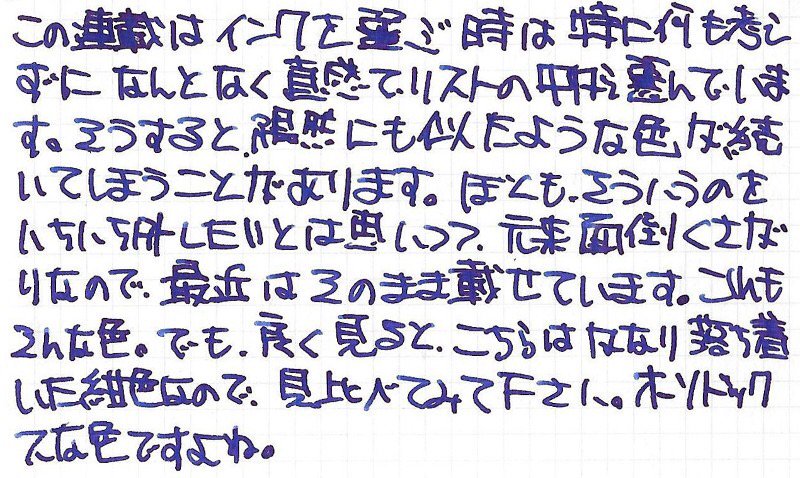 この連載はインクを選ぶ時は特に何も考え
ずになんとなく直感でリストの中から選んでいま
す。そうすると、偶然にも似たような色が続
いてしまうことがあります。ぼくも、そういうのを
いちいち外したいとは思いつつ、元来面倒くさが
りなので、最近はそのまま載せています。これも
そんな色。でも、良く見ると、こちらはかなり落ち着
いた紺色なので、見比べてみて下さい。オーソドックス
な色ですよね。